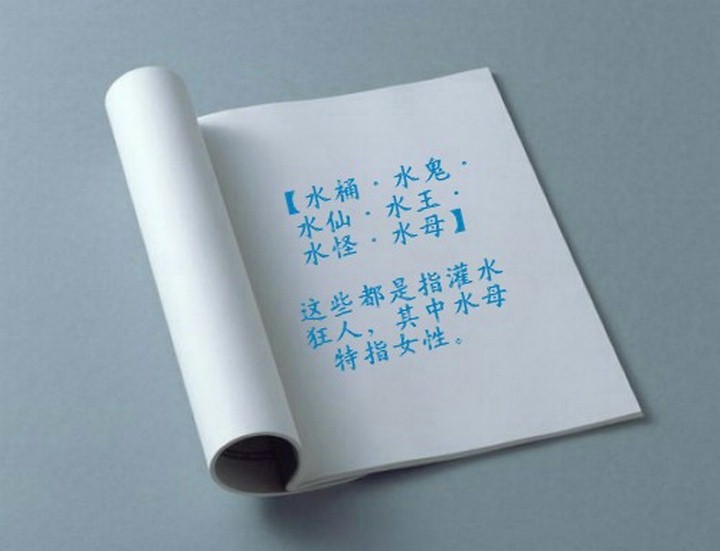 【水桶·水鬼·
水仙·水王·
水怪·水母】
这些都是指灌水
狂人，其中水母
特指女性。